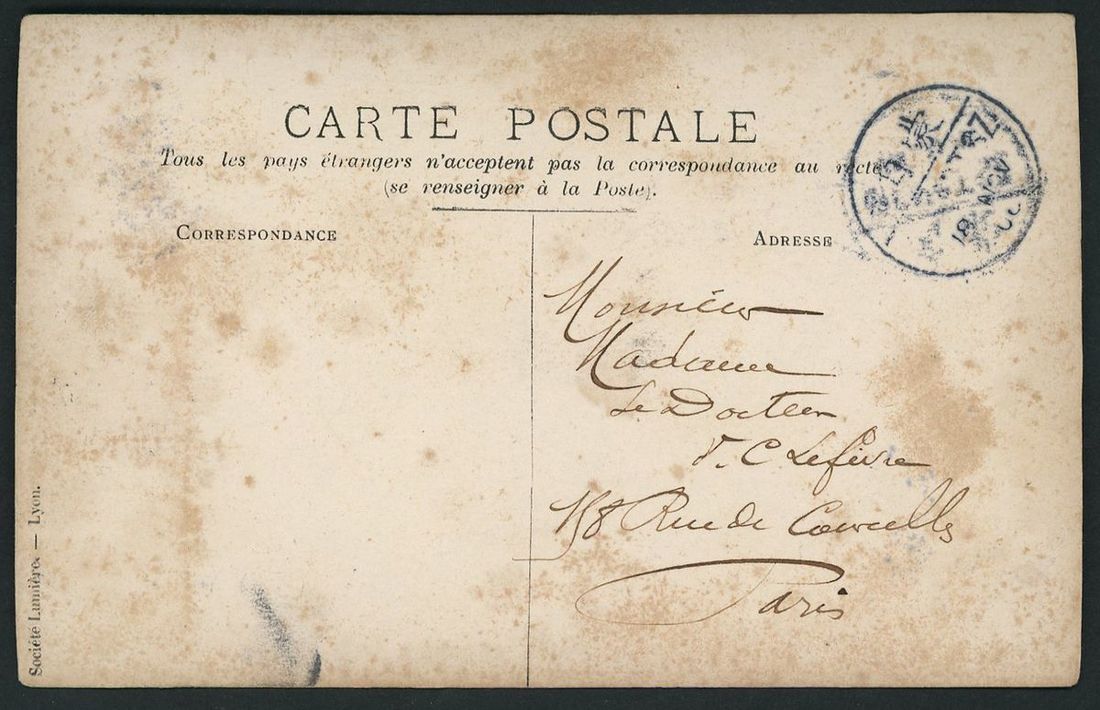 CARTE POSTALE
Tous les pays étrangers n'acceptent pas la correspondance au recto
(se renseigner à la Poste).
CORRESPONDANCE
ADRESSE
Monsieur
Madame
Le Docteur
Lefèvre
158 Rue de Courcelles
Paris
Société Lumière. — Lyon.